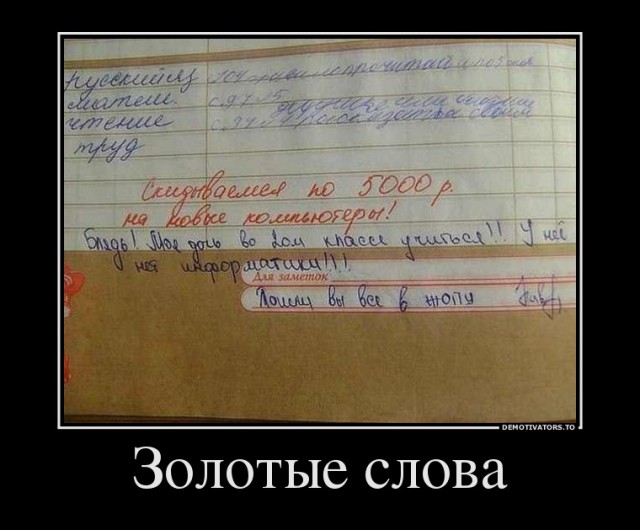 русский яз
матем. с.97 №5
чтение
труд
Скидываемся по 5000 р.
на новые компьютеры!
Блядь! Моя дочь во 2ом классе учиться!! У неё
нет информатики!!!
Для заметок
Пошли вы все в жопу
DEMOTIVATORS.TO
Золотые слова